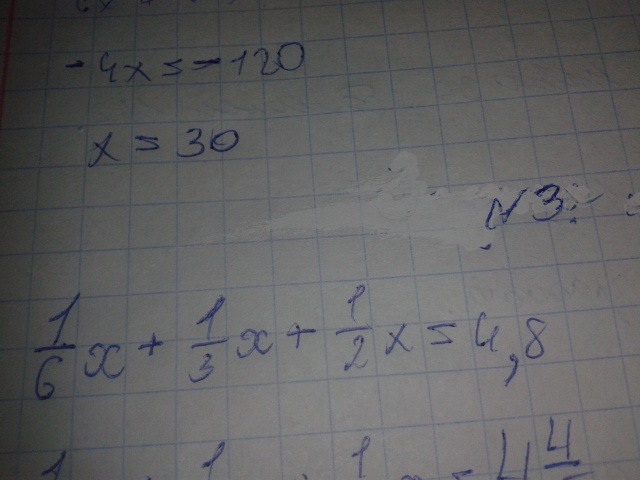 -4x=-120
x=30
N3.
1/6 x + 1/3 x + 1/2 x = 4,8